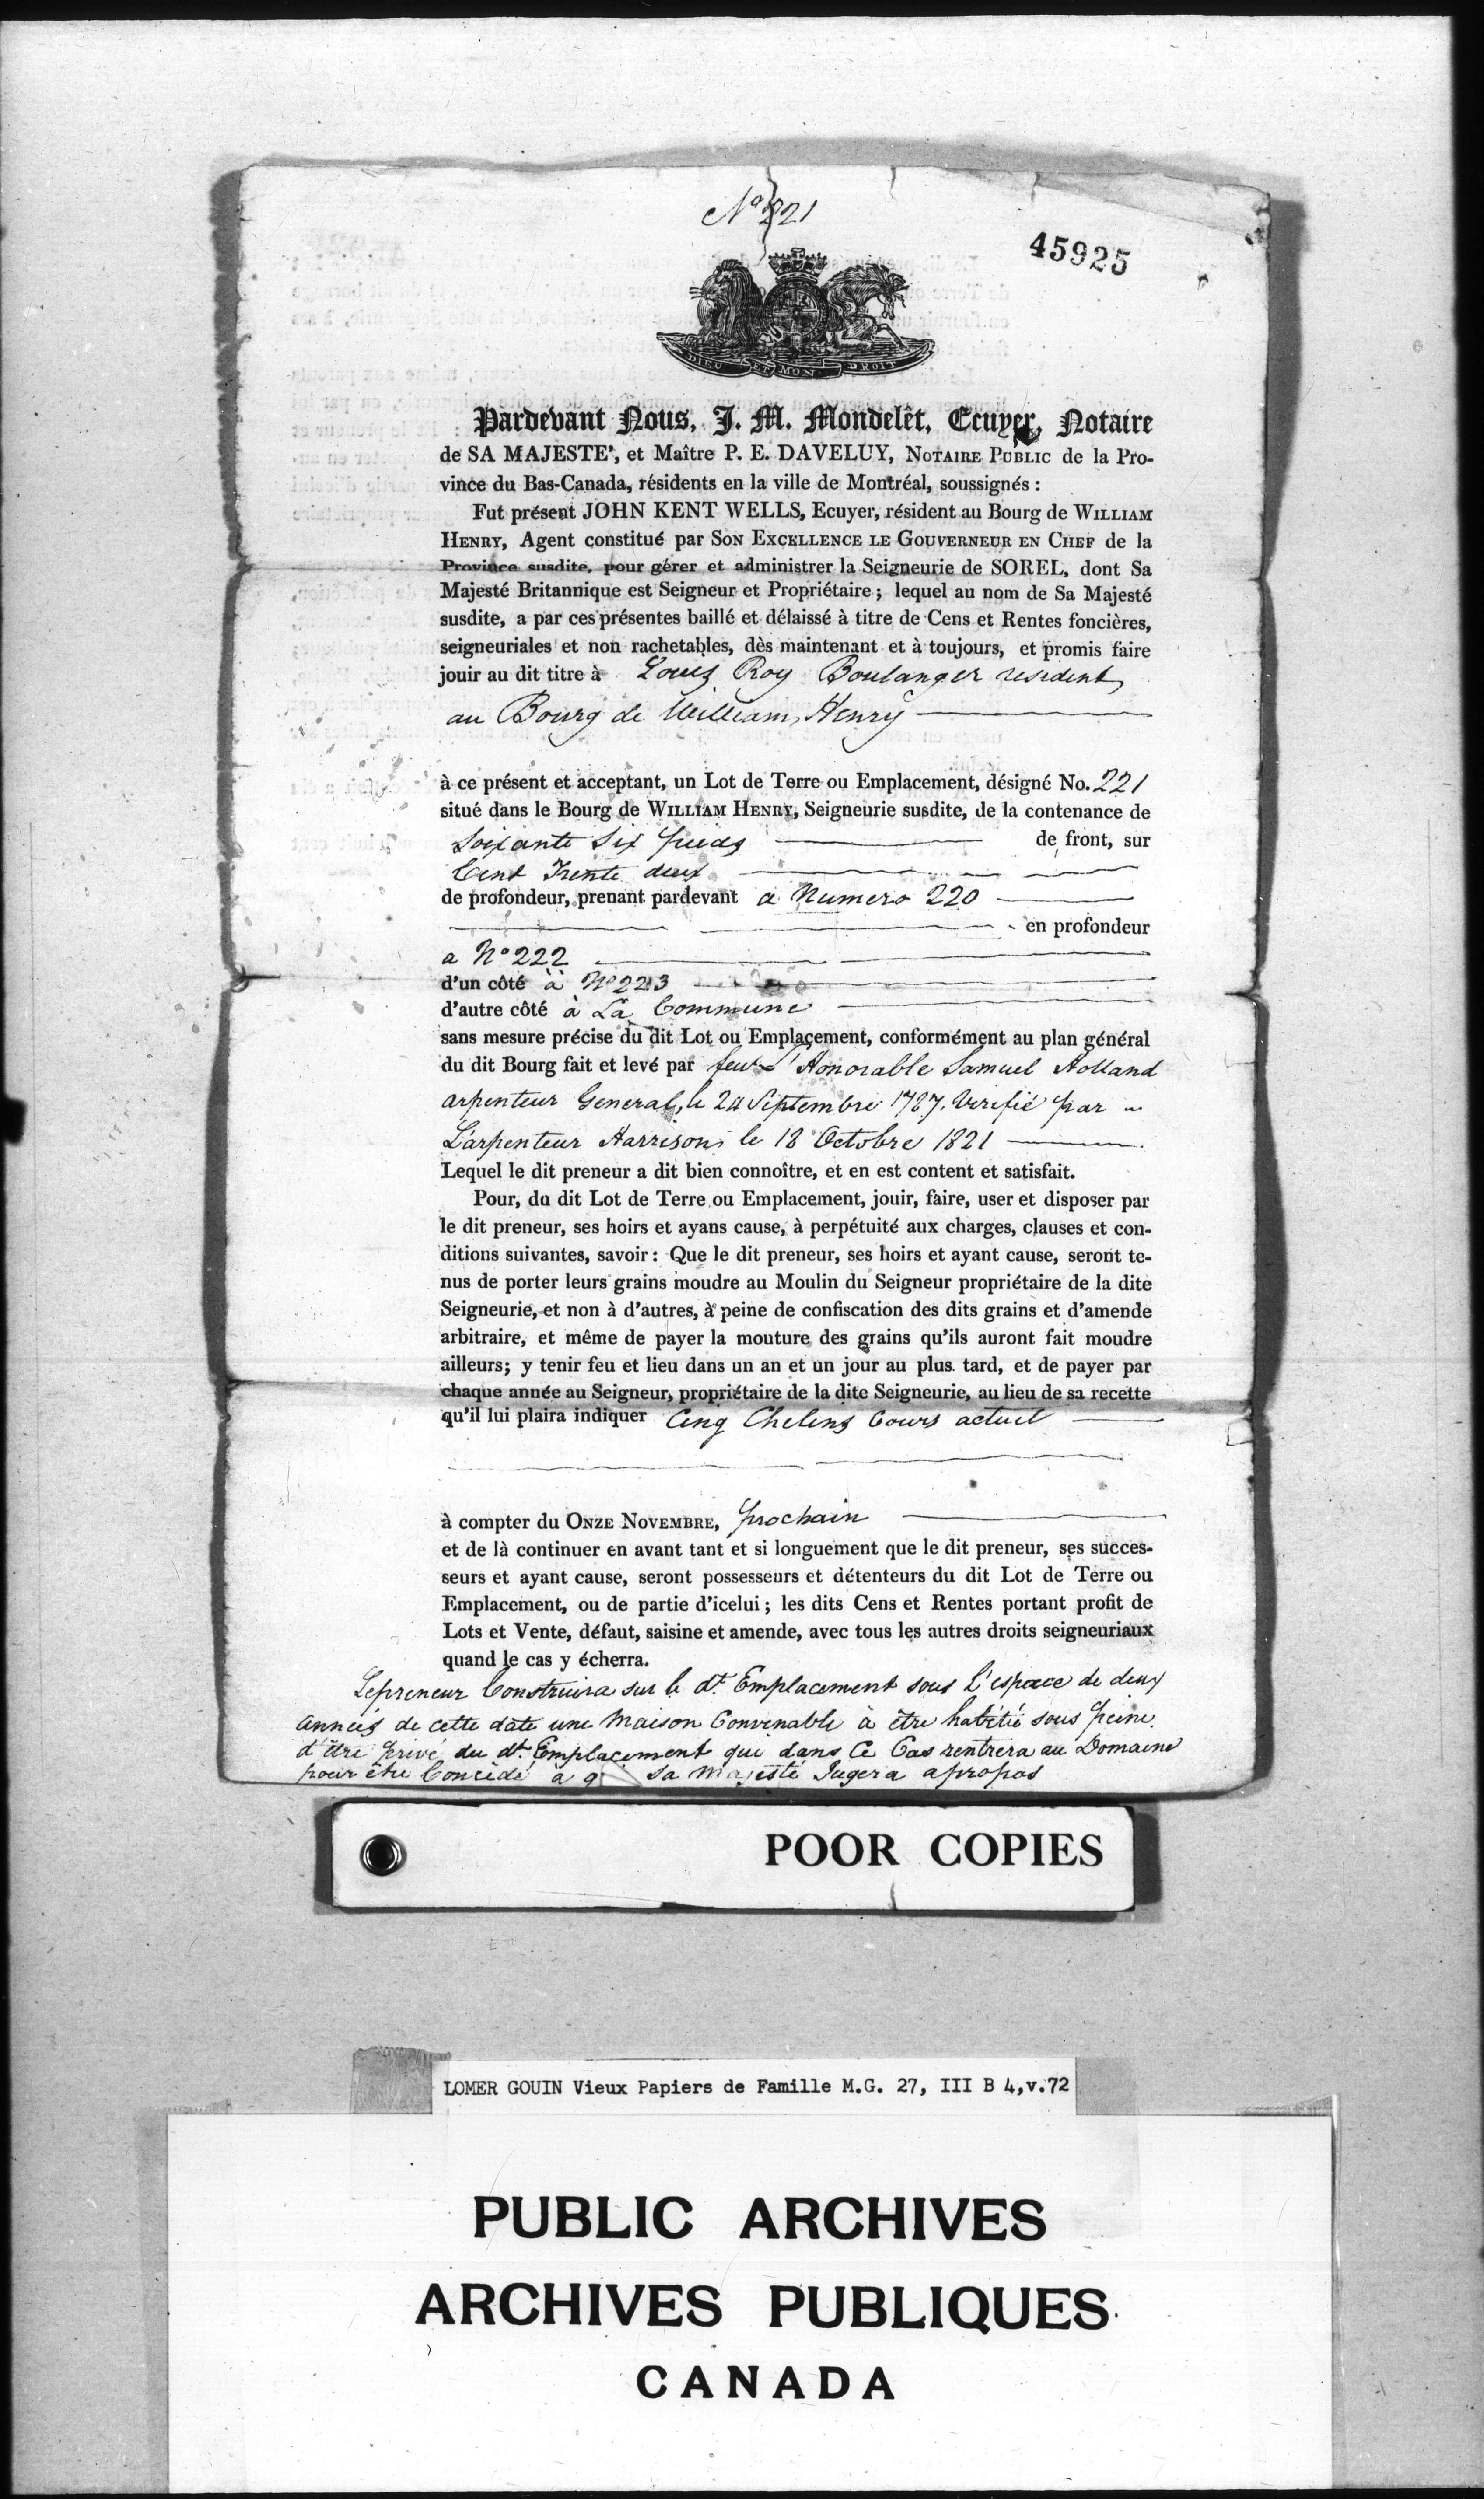 No 221
45925
DIEU ET MON DROIT
Pardevant Nous, J. M. Mondelêt, Ecuyer, Notaire
de SA MAJESTE', et Maître P. E. DAVELUY, NOTAIRE PUBLIC de la Pro-
vince du Bas-Canada, résidents en la ville de Montréal, soussignés :
Fut présent JOHN KENT WELLS, Ecuyer, résident au Bourg de WILLIAM
HENRY, Agent constitué par SON EXCELLENCE LE GOUVERNEUR EN CHEF de la
Province susdite, pour gérer et administrer la Seigneurie de SOREL, dont Sa
Majesté Britannique est Seigneur et Propriétaire ; lequel au nom de Sa Majesté
susdite, a par ces présentes baillé et délaissé à titre de Cens et Rentes foncières,
seigneuriales et non rachetables, dès maintenant et à toujours, et promis faire
jouir au dit titre à Louis Roy Boulanger resident
au Bourg de William Henry
à ce présent et acceptant, un Lot de Terre ou Emplacement, désigné No. 221
situé dans le Bourg de WILLIAM HENRY, Seigneurie susdite, de la contenance de
Soixante Six pieds de front, sur
Cent Trente deux
de profondeur, prenant pardevant a Numero 220
en profondeur
a No 222
d'un côté à No 223
d'autre côté à La Commune
sans mesure précise du dit Lot ou Emplaçement, conformément au plan général
du dit Bourg fait et levé par feu L'Honorable Samuel Holland
arpenteur General, le 24 Septembre 1787. Verifié par
L'arpenteur Harrison le 18 Octobre 1821
Lequel le dit preneur a dit bien connoître, et en est content et satisfait.
Pour, du dit Lot de Terre ou Emplacement, jouir, faire, user et disposer par
le dit preneur, ses hoirs et ayans cause, à perpétuité aux charges, clauses et con-
ditions suivantes, savoir : Que le dit preneur, ses hoirs et ayant cause, seront te-
nus de porter leurs grains moudre au Moulin du Seigneur propriétaire de la dite
Seigneurie, et non à d'autres, à peine de confiscation des dits grains et d'amende
arbitraire, et même de payer la mouture des grains qu'ils auront fait moudre
ailleurs; y tenir feu et lieu dans un an et un jour au plus tard, et de payer par
chaque année au Seigneur, propriétaire de la dite Seigneurie, au lieu de sa recette
qu'il lui plaira indiquer Cinq Chelins Cours actuel
à compter du ONZE NOVEMBRE, prochain
et de là continuer en avant tant et si longuement que le dit preneur, ses succes-
seurs et ayant cause, seront possesseurs et détenteurs du dit Lot de Terre ou
Emplacement, ou de partie d'icelui ; les dits Cens et Rentes portant profit de
Lots et Vente, défaut, saisine et amende, avec tous les autres droits seigneuriaux
quand le cas y écherra.
Le preneur Construira sur le dt. Emplacement sous L'espace de deux
années de cette date une Maison Convenable à être habitée sous peine
d'être privé du dt. Emplacement qui dans Ce Cas rentrera au Domaine
pour être Concédé à Sa Majesté Jugera apropos
POOR COPIES
LOMER GOUIN Vieux Papiers de Famille M.G. 27, III B 4,v.72
PUBLIC ARCHIVES
ARCHIVES PUBLIQUES
CANADA